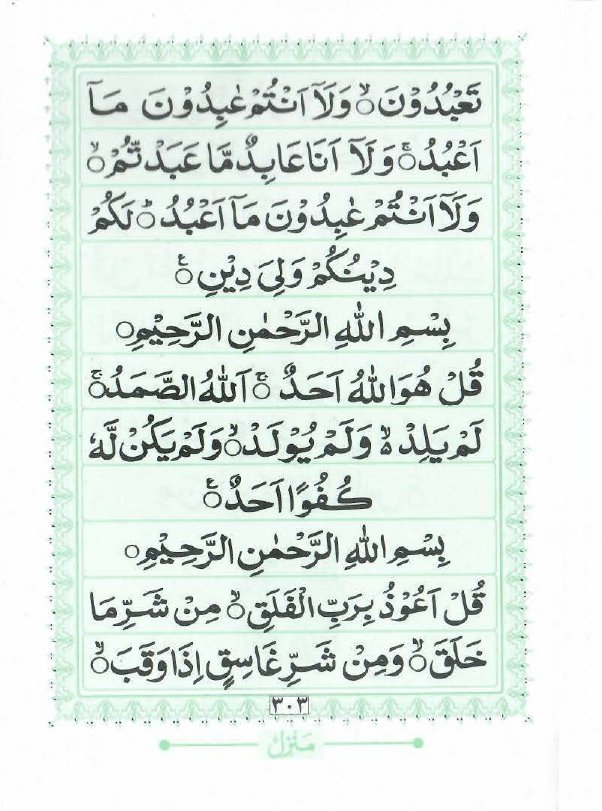 تَعْبُدُوْنَ ۙ وَلَاۤ اَنْتُمْ عٰبِدُوْنَ مَاۤ
اَعْبُدُ ۚ وَلَاۤ اَنَا عَابِدٌ مَّا عَبَدْتُّمْ ۙ
وَلَاۤ اَنْتُمْ عٰبِدُوْنَ مَاۤ اَعْبُدُ ؕ لَكُمْ
دِيْنُكُمْ وَلِىَ دِيْنِ ۚ
بِسْمِ اللّٰهِ الرَّحْمٰنِ الرَّحِيْمِ ○
قُلْ هُوَ اللّٰهُ اَحَدٌ ۚ اَللّٰهُ الصَّمَدُ ۚ
لَمْ يَلِدْ ۙ وَلَمْ يُوْلَدْ ۙ وَلَمْ يَكُنْ لَّهٗ
كُفُوًا اَحَدٌ ۚ
بِسْمِ اللّٰهِ الرَّحْمٰنِ الرَّحِيْمِ ○
قُلْ اَعُوْذُ بِرَبِّ الْفَلَقِ ۙ مِنْ شَرِّ مَا
خَلَقَ ۙ وَمِنْ شَرِّ غَاسِقٍ اِذَا وَقَبَ ۙ
٣٠٣
مَنْزِلْ